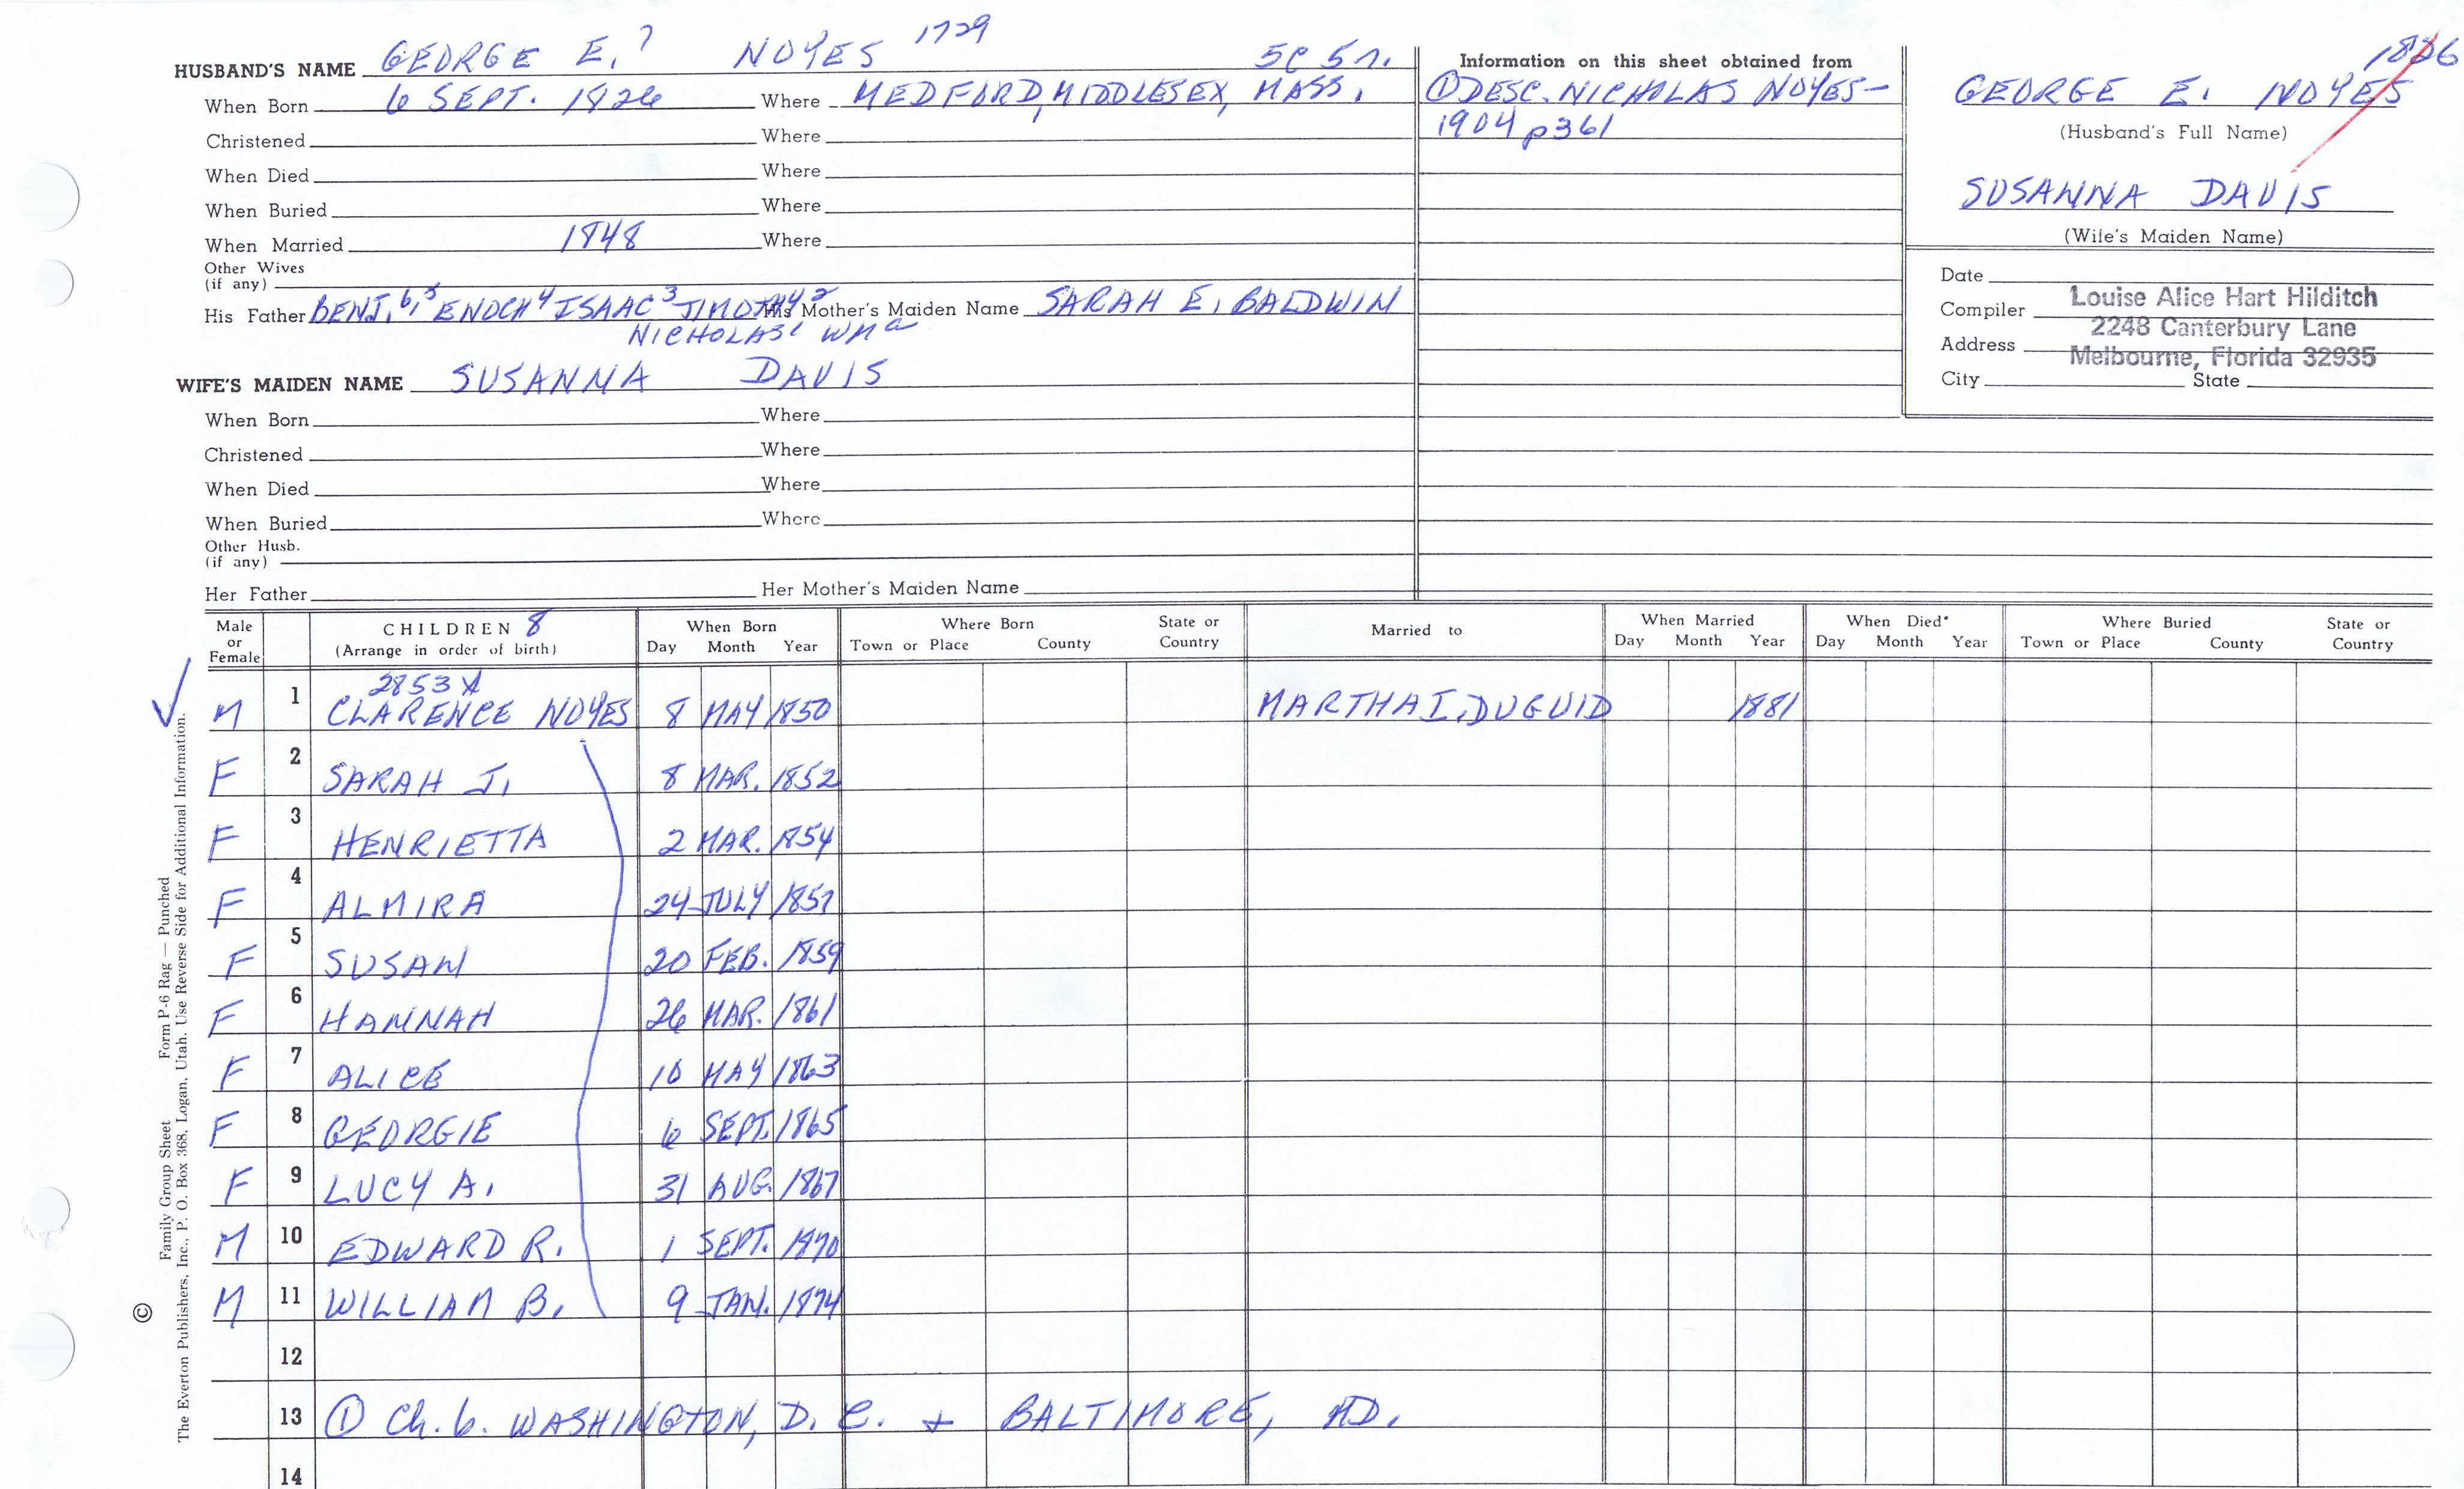 HUSBAND'S NAME GEORGE E.? NOYES 1729 5C 5n.
When Born 6 SEPT. 1826 Where MEDFORD, MIDDLESEX, MASS.
Christened Where
When Died Where
When Buried Where
When Married 1848 Where
Other Wives
(if any)
His Father BENJ.6,5 ENOCH4 ISAAC3 TIMOTHY2 His Mother's Maiden Name SARAH E. BALDWIN
NICHOLAS1 WMa
WIFE'S MAIDEN NAME SUSANNA DAVIS
When Born Where
Christened Where
When Died Where
When Buried Where
Other Husb.
(if any)
Her Father Her Mother's Maiden Name
Information on this sheet obtained from
① DESC. NICHOLAS NOYES-
1904 p361
1826
GEORGE E. NOYES
(Husband's Full Name)
SUSANNA DAVIS
(Wife's Maiden Name)
Date
Compiler Louise Alice Hart Hilditch
Address 2248 Canterbury Lane
Melbourne, Florida 32935
City State
Male or Female CHILDREN 8 (Arrange in order of birth) When Born Day Month Year Where Born Town or Place County State or Country Married to When Married Day Month Year When Died* Day Month Year Where Buried Town or Place County State or Country
2853 X
✓ M 1 CLARENCE NOYES 8 MAY 1850 MARTHA I. DUGUID 1881
F 2 SARAH J. 8 MAR. 1852
F 3 HENRIETTA 2 MAR. 1854
F 4 ALMIRA 24 JULY 1857
F 5 SUSAN 20 FEB. 1859
F 6 HANNAH 26 MAR. 1861
F 7 ALICE 10 MAY 1863
F 8 GEORGIE 6 SEPT. 1865
F 9 LUCY A. 31 AUG. 1867
M 10 EDWARD R. 1 SEPT. 1870
M 11 WILLIAM B. 9 JAN. 1874
12
13 ① Ch. b. WASHINGTON, D.C. + BALTIMORE, MD.
14
© Family Group Sheet Form P-6 Rag — Punched
The Everton Publishers, Inc., P. O. Box 368, Logan, Utah. Use Reverse Side for Additional Information.